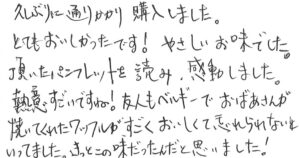 久しぶりに通りかかり購入しました。
とてもおいしかったです！やさしいお味でした。
頂いたパンフレットを読み、感動しました。
熱意すごいですね！友人もベルギーでおばあさんが
焼いてくれたワッフルがすごくおいしくて忘れられないと
いってました。きっとこの味だったんだと思いました！